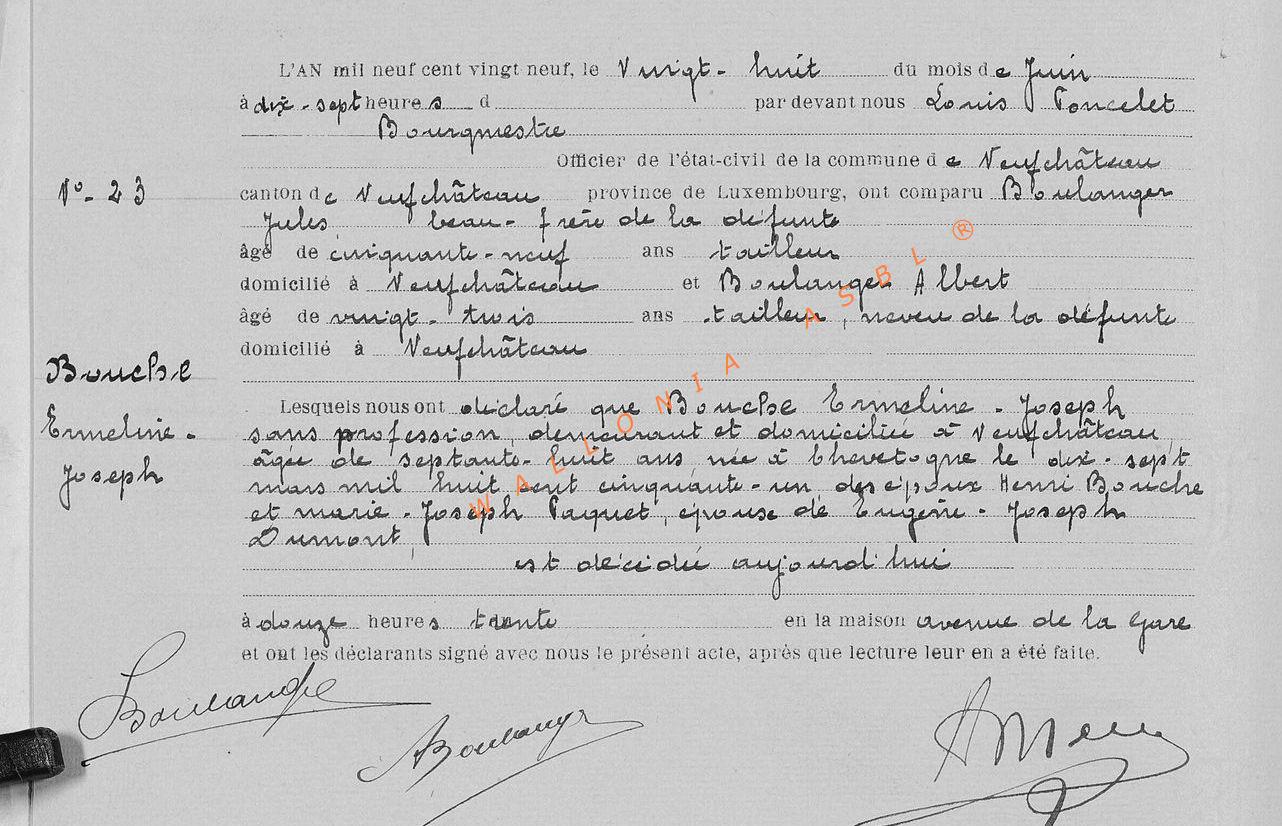 L'AN mil neuf cent vingt neuf, le Vingt-huit du mois de Juin
à dix-sept heures d par devant nous Louis Poncelet
Bourgmestre
Officier de l'état-civil de la commune de Neufchâteau
N° - 23 canton de Neufchâteau province de Luxembourg, ont comparu Boulanger
Jules beau-frère de la défunte
âgé de cinquante-neuf ans tailleur
domicilié à Neufchâteau et Boulanger Albert
âgé de vingt-trois ans tailleur, neveu de la défunte
domicilié à Neufchâteau
Bouche
Ermeline-
Joseph
Lesquels nous ont déclaré que Bouche Ermeline-Joseph
sans profession, demeurant et domiciliée à Neufchâteau,
âgée de septante-huit ans, née à Chevetogne le dix-sept
mars mil huit cent cinquante-un, des époux Henri Bouche
et marie-Joseph Paquet, épouse de Eugène-Joseph
Dumont,
est décédée aujourd'hui
à douze heures trente en la maison avenue de la Gare
et ont les déclarants signé avec nous le présent acte, après que lecture leur en a été faite.
Boulanger
ABoulanger
WALLONIA ASBL ®